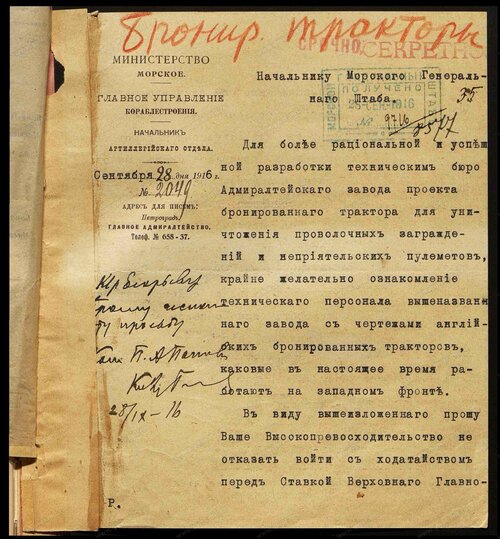 Бронир. тракторы
СРОЧНО.
СЕКРЕТНО
МИНИСТЕРСТВО
МОРСКОЕ.
ГЛАВНОЕ УПРАВЛЕНІЕ
КОРАБЛЕСТРОЕНІЯ.
НАЧАЛЬНИКЪ
АРТИЛЛЕРІЙСКАГО ОТДѢЛА.
Сентября 28 дня 1916 г.
№ 2049
АДРЕСЪ ДЛЯ ПИСЕМЪ:
Петроградъ,
ГЛАВНОЕ АДМИРАЛТЕЙСТВО.
Телеф. № 658-37.
Начальнику Морского Генераль-
наго Штаба.
ПОЛУЧЕНО
28 СЕН. 1916
№ 9716
35
Для болѣе раціональной и успѣш
ной разработки техническимъ бюро
Адмиралтейскаго завода проекта
бронированнаго трактора для уни-
чтоженія проволочныхъ загражде-
ній и непріятельскихъ пулеметовъ,
крайне желательно ознакомленіе
техническаго персонала вышеназван
наго завода съ чертежами англій-
скихъ бронированныхъ тракторовъ,
каковые въ настоящее время ра-
ботаютъ на западномъ фронтѣ.
Въ виду вышеизложеннаго прошу
Ваше Высокопревосходительство не
отказать войти съ ходатайствомъ
передъ Ставкой Верховнаго Главно-
28/IX-16
Р.